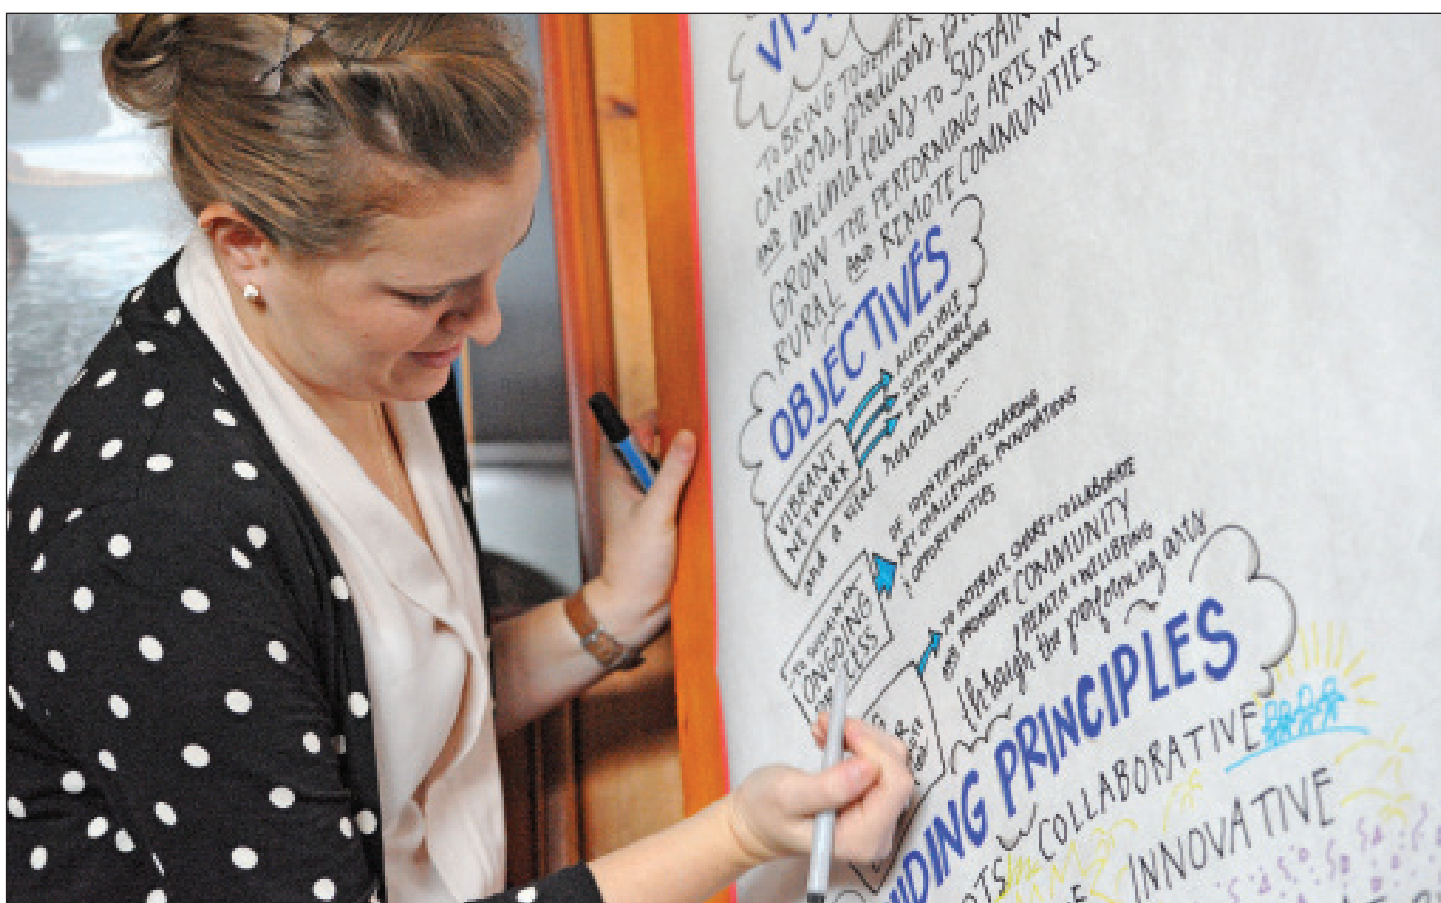 VIS
TO BRING TOGETHER
creators, producers, p
AND animateurs to SUSTAIN
GROW THE PERFORMING ARTS IN
RURAL AND REMOTE COMMUNITIES.
OBJECTIVES
VIBRANT
NETWORK
ACCESSIBLE
SUSTAINABLE
EASY TO MANAGE
and a vital resource...
TO SUSTAIN AN
ONGOING
CESS
OF IDENTIFYING + SHARING
KEY CHALLENGES, INNOVATIONS
OPPORTUNITIES
TO INTERACT, SHARE + COLLABORATE
PROMOTE COMMUNITY
HEALTH + WELLBEING
through the performing arts
IDING PRINCIPLES
COLLABORATIVE
INNOVATIVE